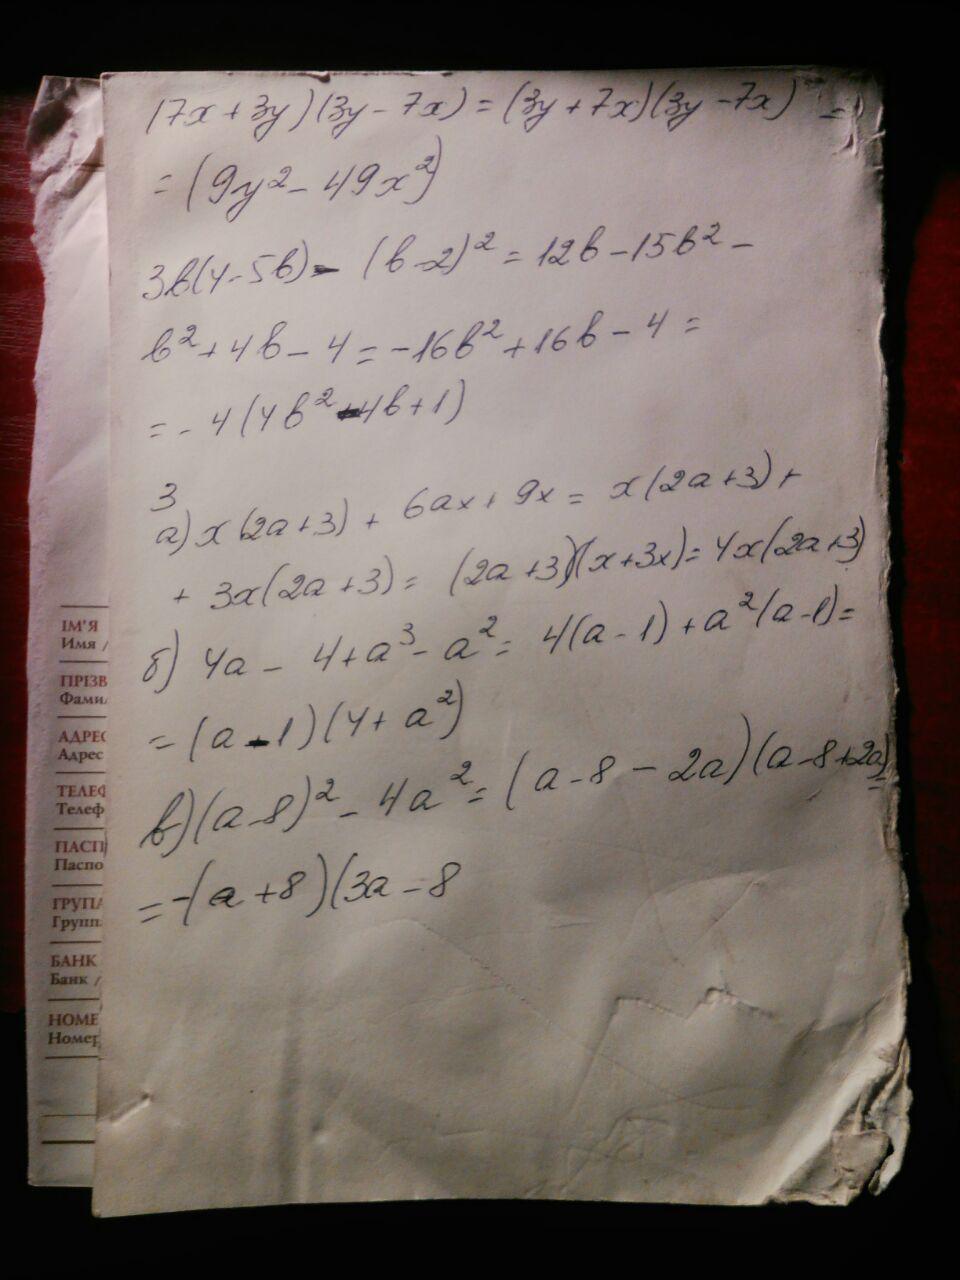 (7x + 3y)(3y - 7x) = (3y + 7x)(3y - 7x) =
= (9y² - 49x²)
3b(4-5b) - (b-2)² = 12b - 15b² -
b² + 4b - 4 = -16b² + 16b - 4 =
= -4(4b² - 4b + 1)
3
а) x(2a+3) + 6ax + 9x = x(2a+3) +
+ 3x(2a+3) = (2a+3)(x+3x) = 4x(2a+3)
б) 4a - 4 + a³ - a² = 4(a-1) + a²(a-1) =
= (a-1)(4+a²)
в) (a-8)² - 4a² = (a-8-2a)(a-8+2a)
=
= -(a+8)(3a-8
ІМ'Я
Имя /
ПРІЗВ
Фами
АДРЕС
Адрес
ТЕЛЕФ
Телеф
ПАСП
Паспо
ГРУПА
Групп
БАНК
Банк /
НОМЕ
Номер